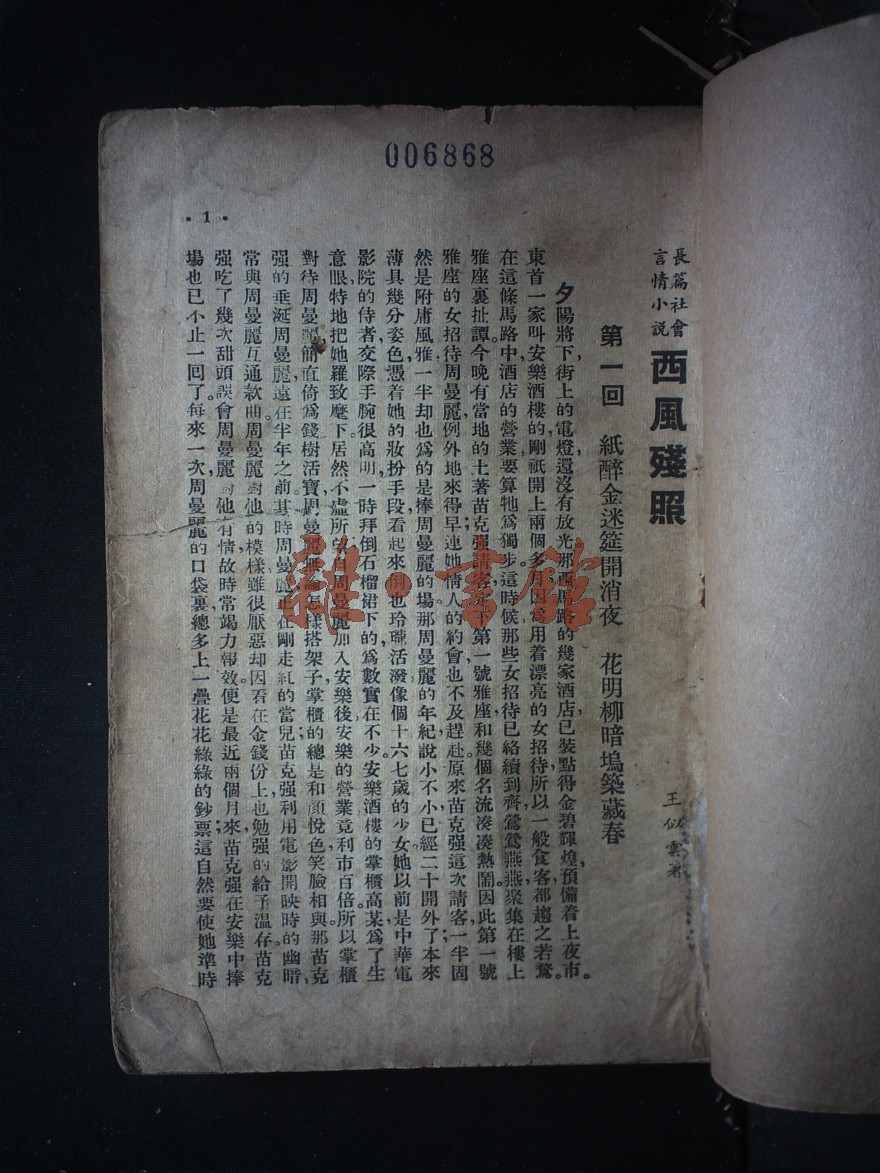 006868
長篇社會
言情小說
西風殘照
王似雲著
第一回　紙醉金迷筵開消夜　花明柳暗塢築藏春
夕陽將下，街上的電燈還沒有放光，那西馬路的幾家酒店，已裝點得金碧輝煌，預備着上夜市。
東首一家叫安樂酒樓的，剛祇開上兩個多月，因爲用着漂亮的女招待，所以一般食客，都趨之若鶩。
在這條馬路中，酒店的營業，要算牠爲獨步。這時候那些女招待，已絡續到齊，鶯鶯燕燕，聚集在樓上
雅座裏扯譚。今晚有當地的土著苗克强請客，定下第一號雅座，和幾個名流湊湊熱鬧。因此第一號
雅座的女招待周曼麗，例外地來得早，連她情人的約會，也不及趕赴。原來苗克强這次請客，一半固
然是附庸風雅，一半却也爲的是捧周曼麗的場。那周曼麗的年紀，說小不小，已經二十開外了，本來
薄具幾分姿色，憑着她的妝扮手段，看起來倒也玲瓏活潑，像個十六七歲的少女。她以前是中華電
影院的侍者，交際手腕很高明，一時拜倒石榴裙下的，爲數實在不少。安樂酒樓的掌櫃高某，爲了生
意眼，特地把她羅致麾下，居然不虛所望，自周曼麗加入安樂後，安樂的營業，竟利市百倍。所以掌櫃
對待周曼麗，簡直倚爲錢樹活寶，周曼麗無論怎樣搭架子，掌櫃的總是和顏悅色，笑臉相與。那苗克
强的垂涎周曼麗，遠在半年之前，其時周曼麗正在剛走紅的當兒，苗克强利用電影開映時的幽暗，
常與周曼麗互通款曲。周曼麗對他的模樣，雖很厭惡，却因看在金錢份上，也勉强的給予溫存。苗克
强吃了幾次甜頭，誤會周曼麗對他有情，故時常竭力報效。便是最近兩個月來，苗克强在安樂中捧
場，也已不止一回了。每來一次，周曼麗的口袋裏，總多上一疊花花綠綠的鈔票，這自然要使她準時
• 1 •
雜·書館